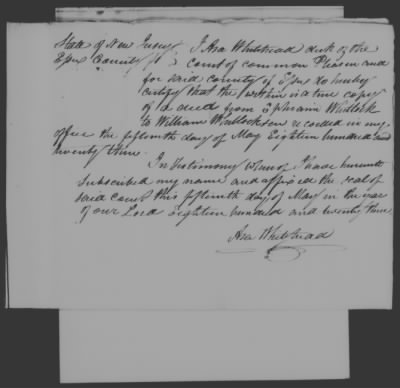 State of New Jersey } I Asa Whitehead clerk of the
Essex County } ss court of common Pleas in and
for said county of Essex do hereby
certify that the within is a true copy
of a deed from Ephraim Whitlock
to William Whitlock recorded in my
office the fifteenth day of May Eighteen hundred and
twenty three.
In Testimony whereof I have hereunto
subscribed my name and affixed the seal of
said court this fifteenth day of May in the year
of our Lord eighteen hundred and twenty three
Asa Whitehead